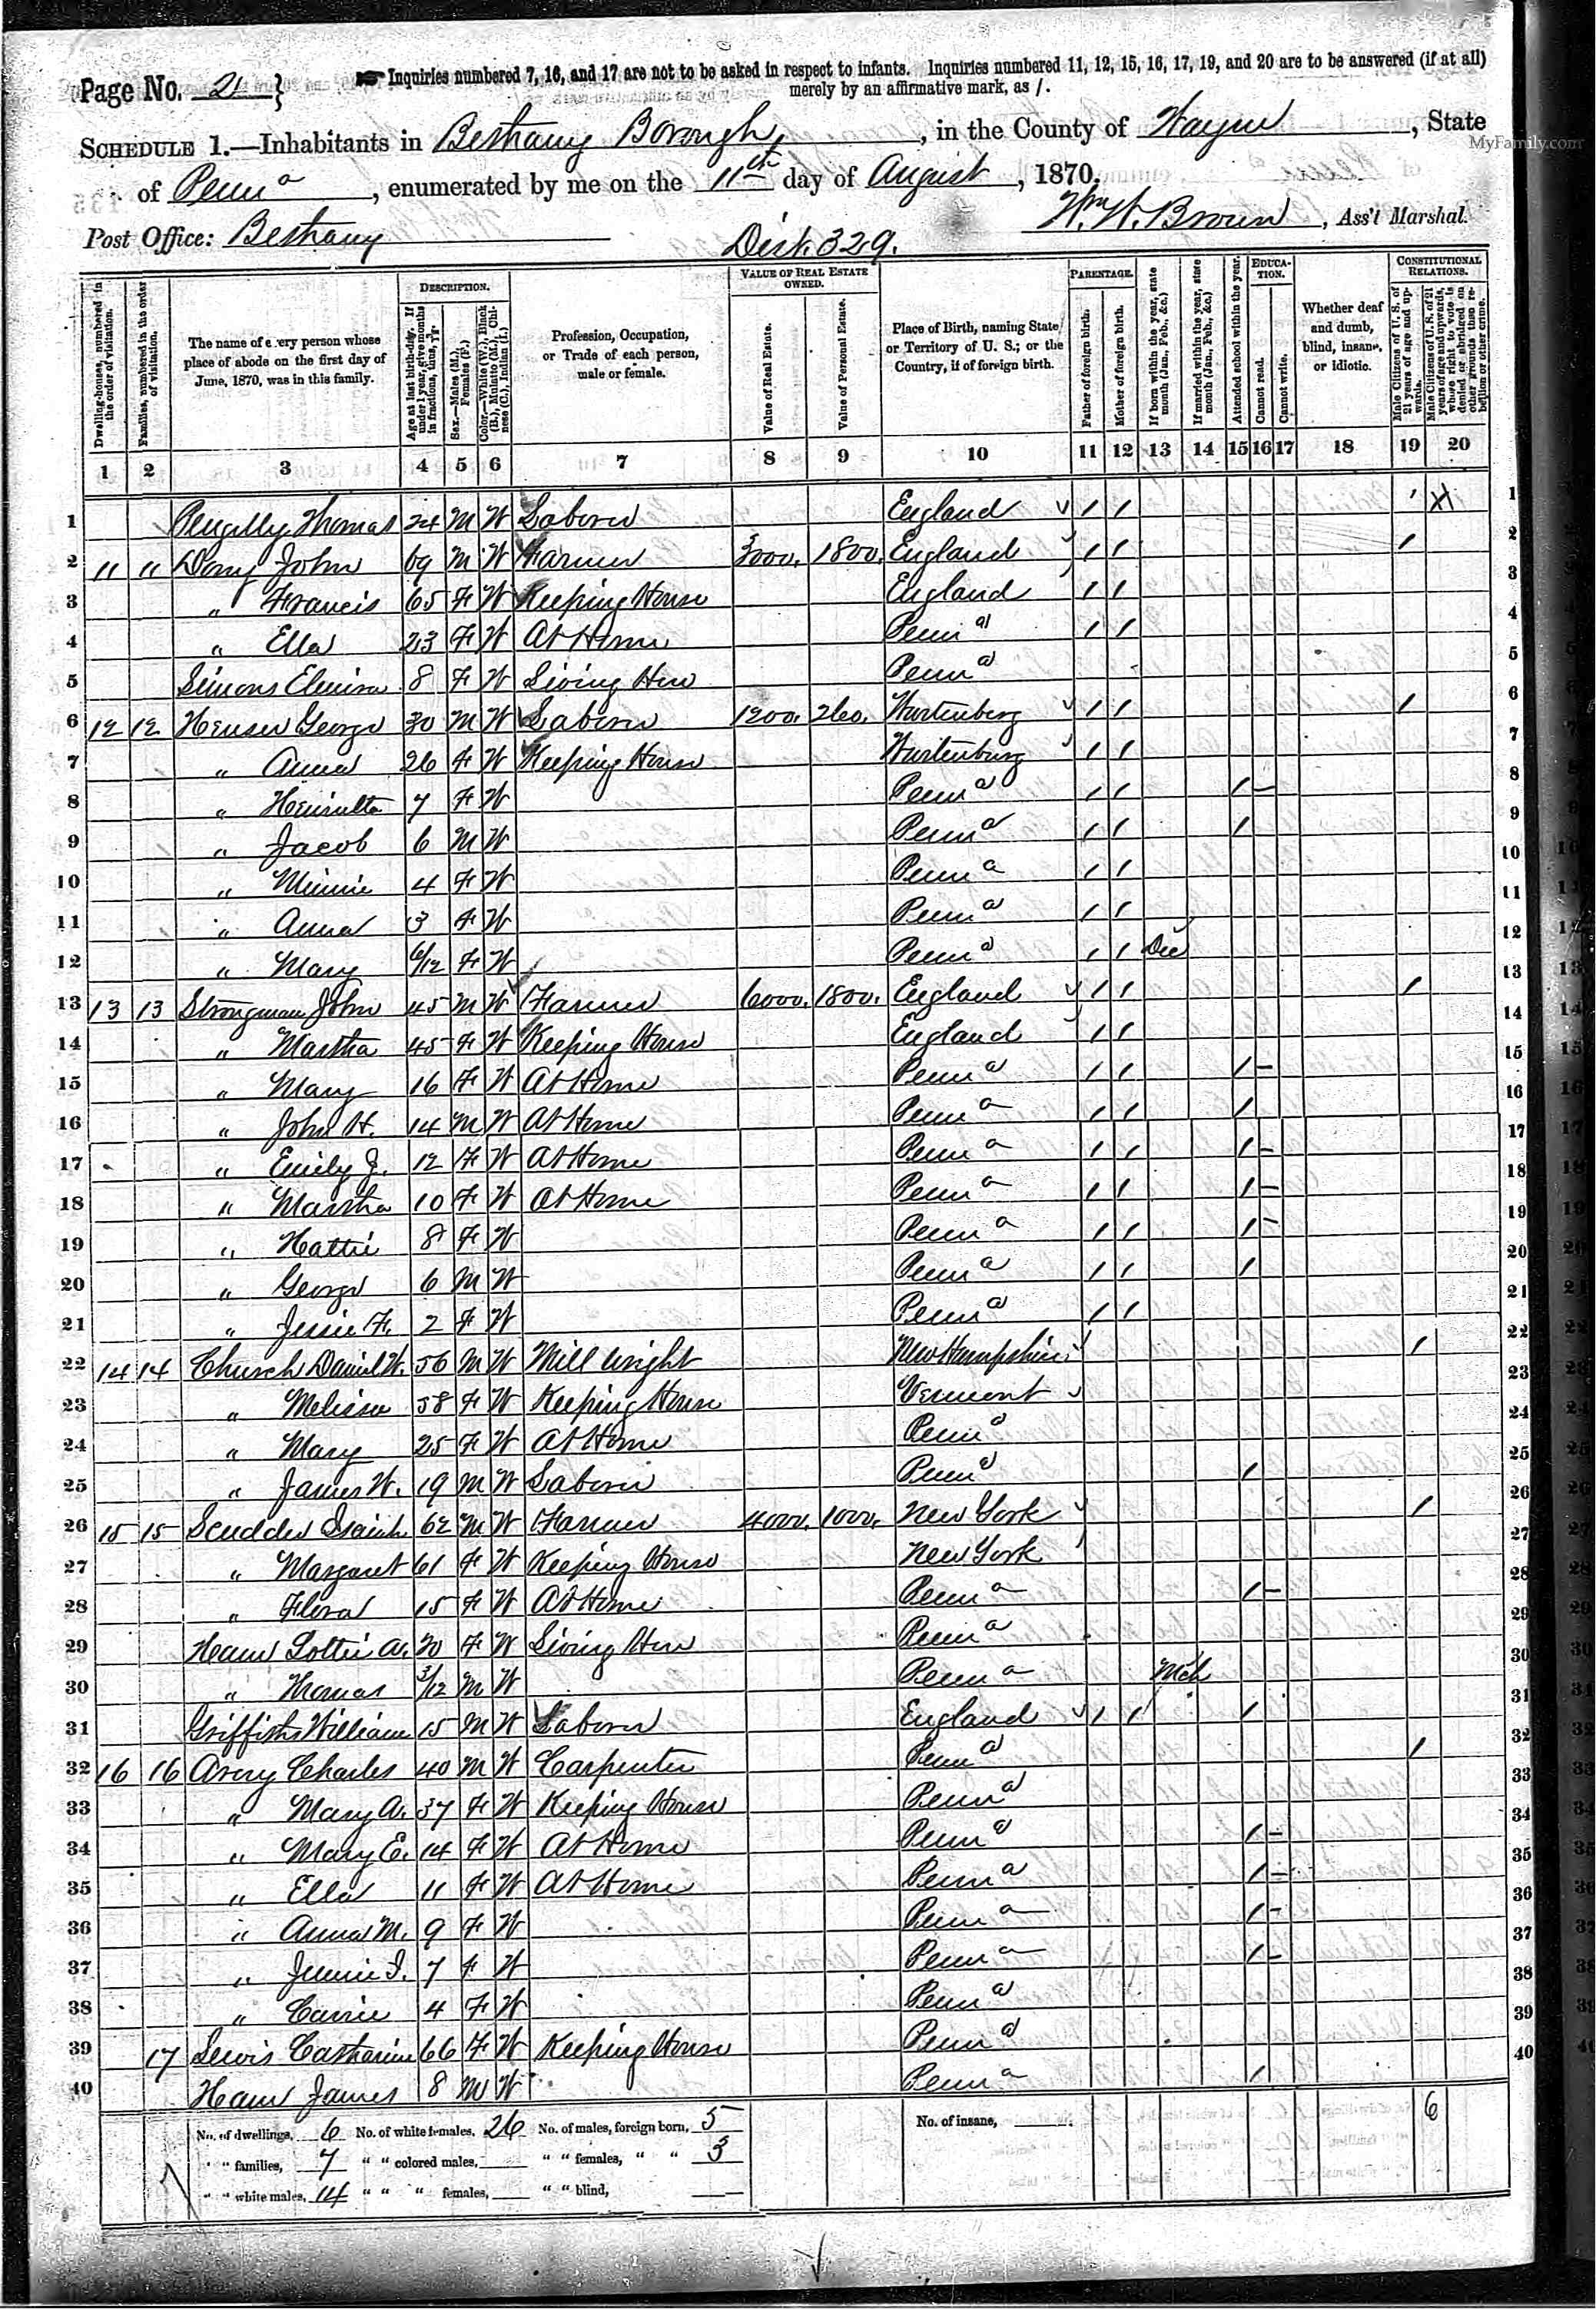 Page No. 2 } Inquiries numbered 7, 16, and 17 are not to be asked in respect to infants. Inquiries numbered 11, 12, 15, 16, 17, 19, and 20 are to be answered (if at all)
merely by an affirmative mark, as /.
SCHEDULE 1.—Inhabitants in Bethany Borough, in the County of Wayne, State
MyFamily.com
of Penna, enumerated by me on the 11th day of August, 1870.
Post Office: Bethany Dist. 329. Wm W. Brown, Ass't Marshal.
Dwelling-houses, numbered in the order of visitation.
Families, numbered in the order of visitation.
The name of every person whose place of abode on the first day of June, 1870, was in this family.
DESCRIPTION.
Age at last birth-day. If under 1 year, give months in fractions, thus, 3/12
Sex.—Males (M.), Females (F.)
Color.—White (W.), Black (B.), Mulatto (M.), Chinese (C.), Indian (I.)
Profession, Occupation, or Trade of each person, male or female.
VALUE OF REAL ESTATE OWNED.
Value of Real Estate.
Value of Personal Estate.
Place of Birth, naming State or Territory of U. S.; or the Country, if of foreign birth.
PARENTAGE.
Father of foreign birth.
Mother of foreign birth.
If born within the year, state month (Jan., Feb., &c.)
If married within the year, state month (Jan., Feb., &c.)
Attended school within the year.
EDUCATION.
Cannot read.
Cannot write.
Whether deaf and dumb, blind, insane, or idiotic.
CONSTITUTIONAL RELATIONS.
Male Citizens of U. S. of 21 years of age and upwards.
Male Citizens of U. S. of 21 years of age and upwards, whose right to vote is denied or abridged on other grounds than rebellion or other crime.
1 2 3 4 5 6 7 8 9 10 11 12 13 14 15 16 17 18 19 20
1 Thomas 24 M W Laborer England / / / X 1
2 11 11 Dony John 69 M W Farmer 3000. 1800. England / / / 2
3 " Francis 65 F W Keeping House England / / 3
4 " Ella 23 F W At Home Penna / / 4
5 Simons Elmira 8 F W Living Here Penna 5
6 12 12 Heuser George 30 M W Laborer 1200. 260. Wurtenberg / / / 6
7 " Anna 26 F W Keeping House Wurtenburg / / 7
8 " Henrietta 7 F W Penna / / / – 8
9 " Jacob 6 M W Penna / / / 9
10 " Minnie 4 F W Penna / / 10
11 " Anna 3 F W Penna / / 11
12 " Mary 6/12 F W Penna / / Dec 12
13 13 13 Strongman John 45 M W Farmer 6000. 1800. England / / / 13
14 " Martha 45 F W Keeping House England / / 14
15 " Mary 16 F W At Home Penna / / / – 15
16 " John H. 14 M W At Home Penna / / / 16
17 " Emily J. 12 F W At Home Penna / / / – 17
18 " Martha 10 F W At Home Penna / / / – 18
19 " Hattie 8 F W Penna / / / – 19
20 " George 6 M W Penna / / / 20
21 " Jessie F. 2 F W Penna / / 21
22 14 14 Church Daniel W. 56 M W Mill wright New Hampshire / 22
23 " Melissa 58 F W Keeping House Vermont 23
24 " Mary 25 F W At Home Penna 24
25 " James W. 19 M W Laborer Penna / 25
26 15 15 Scudder Isaiah 62 M W Farmer 4000. 1000. New York / 26
27 " Margaret 61 F W Keeping House New York 27
28 " Flora 15 F W At Home Penna / – 28
29 Ham Lottie A. 20 F W Living Here Penna 29
30 " Thomas 3/12 M W Penna Mch 30
31 Griffiths William 15 M W Laborer England / / / 31
32 16 16 Avery Charles 40 M W Carpenter Penna / 32
33 " Mary A. 37 F W Keeping House Penna 33
34 " Mary E. 14 F W At Home Penna / – 34
35 " Ella 11 F W At Home Penna / – 35
36 " Anna M. 9 F W Penna / – 36
37 " Jennie I. 7 F W Penna / – 37
38 " Carrie 4 F W Penna 38
39 17 Lewis Catharine 66 F W Keeping House Penna 39
40 Ham James 8 M W Penna / 40
No. of dwellings, 6 No. of white females, 26 No. of males, foreign born, 5 No. of insane, 6
" " families, 7 " " colored males, " " females, " " 3
" " white males, 14 " " " females, " " blind,